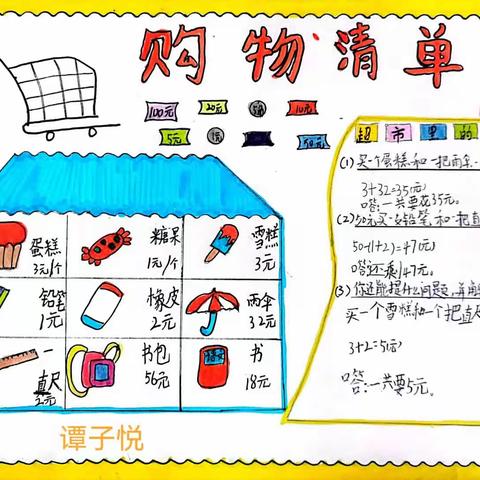 购物清单
100元 20元 10元
5元
超市里的
蛋糕 3元/个
糖果 1元/个
雪糕 3元
铅笔 1元
橡皮 2元
雨伞 32元
直尺 2元
书包 56元
书 18元
(1)买一个蛋糕和一把雨伞
3+32=35(元)
答:一共要花35元。
(2)50元买一支铅笔和一把直
50-(1+2)=47(元)
答:还剩47元。
(3)你还能提什么问题,并
买一个雪糕和一个把直尺
3+2=5(元)
答:一共要5元。
谭子悦